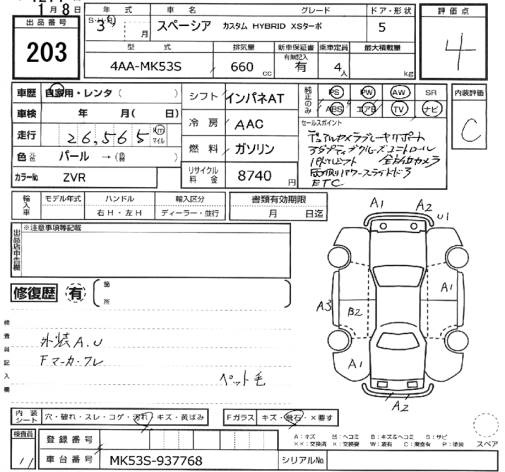 1月8日
出品番号
203
年式
車名
グレード
ドア・形状
評価点
S・H・R
3年
月
スペーシア
カスタム HYBRID XSターボ
5
4
型式
排気量
新車保証書
有無記入
乗車定員
最大積載量
4AA-MK53S
660
cc
有
4人
kg
車歴
自家用・レンタ(
)
シフト
インパネAT
純正のみ
PS
PW
AW
SR
ABS
エアB
TV
ナビ
内装評価
C
車検
年
月(
日)
冷房
AAC
セールスポイント
デュアルカメラブレーキサポート
アダプティブクルーズコントロール
全方位カメラ
ETC
走行
26,565
km
マイル
燃料
ガソリン
色
パール
→(
)
リサイクル料金
8740
円
カラーNo
ZVR
輸入車
モデル年式
ハンドル
輸入区分
書類有効期限
右H・左H
ディーラー・並行
月
日迄
※注意事項等記載
修復歴
有
箇所
外装A.U
Fマーカ・フレ
ペット毛
A1
A2
U1
A3
B2
A1
A1
A1
A2
内装シート
穴・破れ・スレ・コゲ・汚れ・キズ・黄ばみ
Fガラス
キズ・飛石・×要す
検査員
11
登録番号
車台番号
MK53S-937768
シリアルNo
スペア